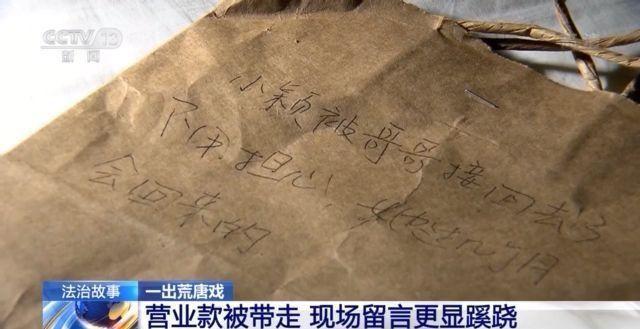 CCTV 13
新闻
小颖被哥哥接回去了
不用担心，她过几个月
会回来的
法治故事 一出荒唐戏
营业款被带走 现场留言更显蹊跷